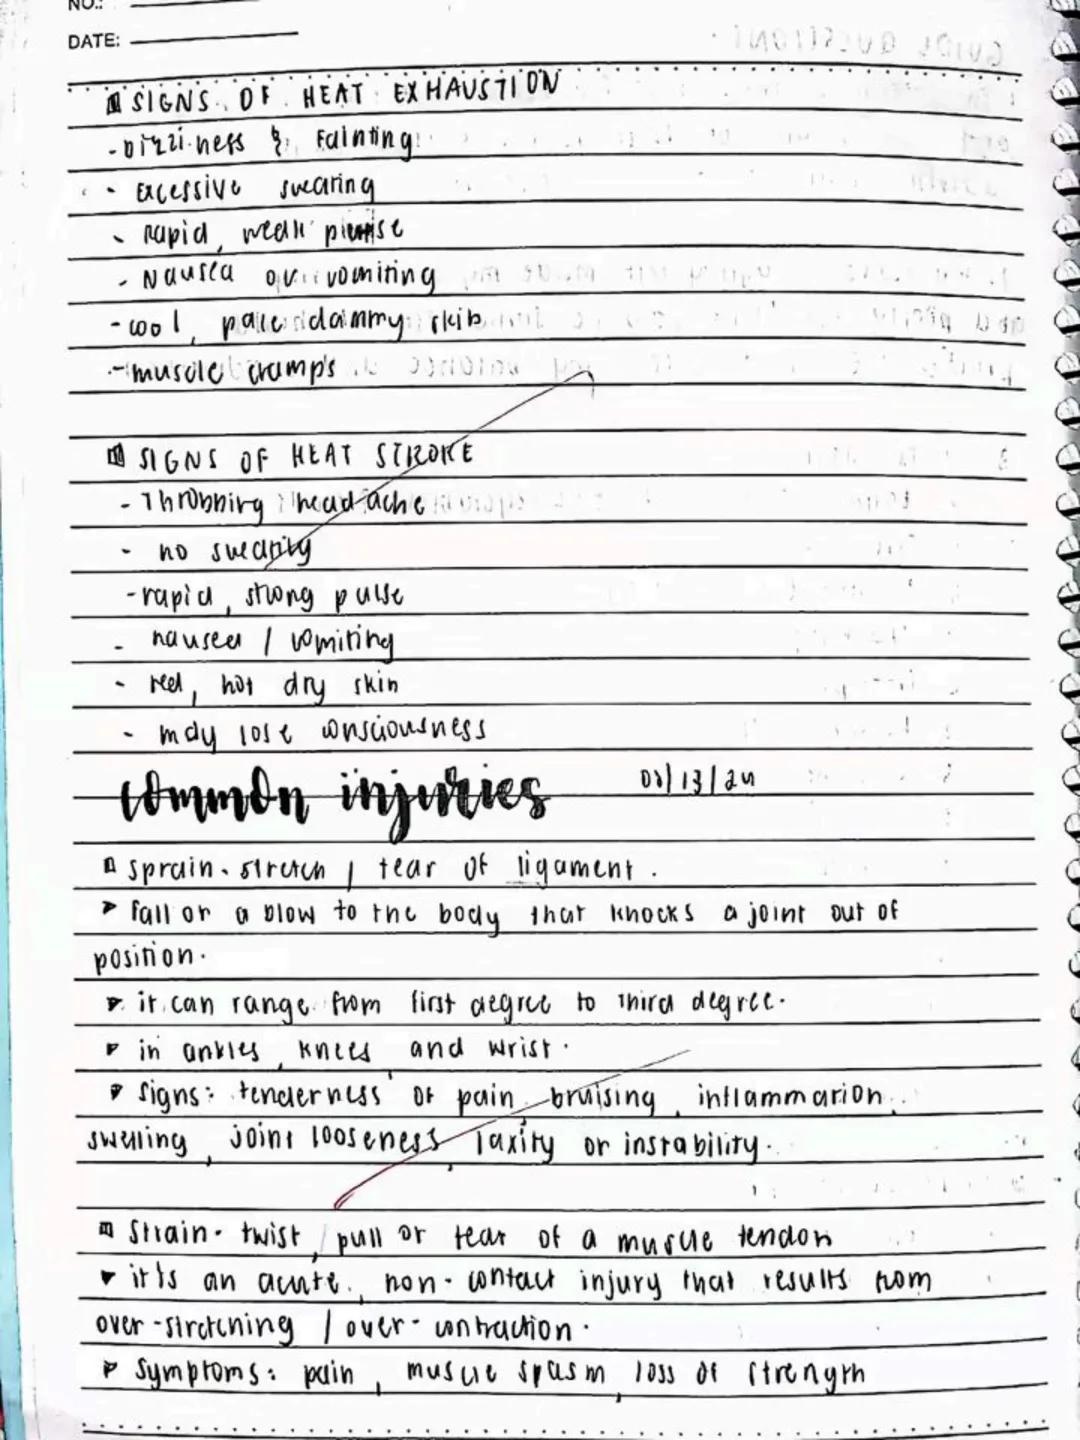 NO.:
DATE:
SIGNS OF HEAT EXHAUSTION
- Dizziness & Fainting
- Excessive swearing
- Rapid, weak pulse
- Nausea or vomiting
- cool, pale clammy skin
- muscle cramp's
SIGNS OF HEAT STROKE
- Throbbing headache
- no swearing
- rapid, strong pulse
- nausea / vomiting
- red, hot dry skin
- may lose consciousness
common injuries
sprain - stretch / tear of ligament.
fall or a blow to the body that knocks a joint out of
position.
it can range from first degree to third degree.
in ankles, knees and wrist.
signs: tenderness or pain, bruising, inflammation,
swelling, joint looseness, laxity or instability.
strain - twist, pull or tear of a muscle tendon
it's an acute, non-contact injury that results from
over-stretching / over-contraction.
symptoms: pain, muscle spasm, loss of strength